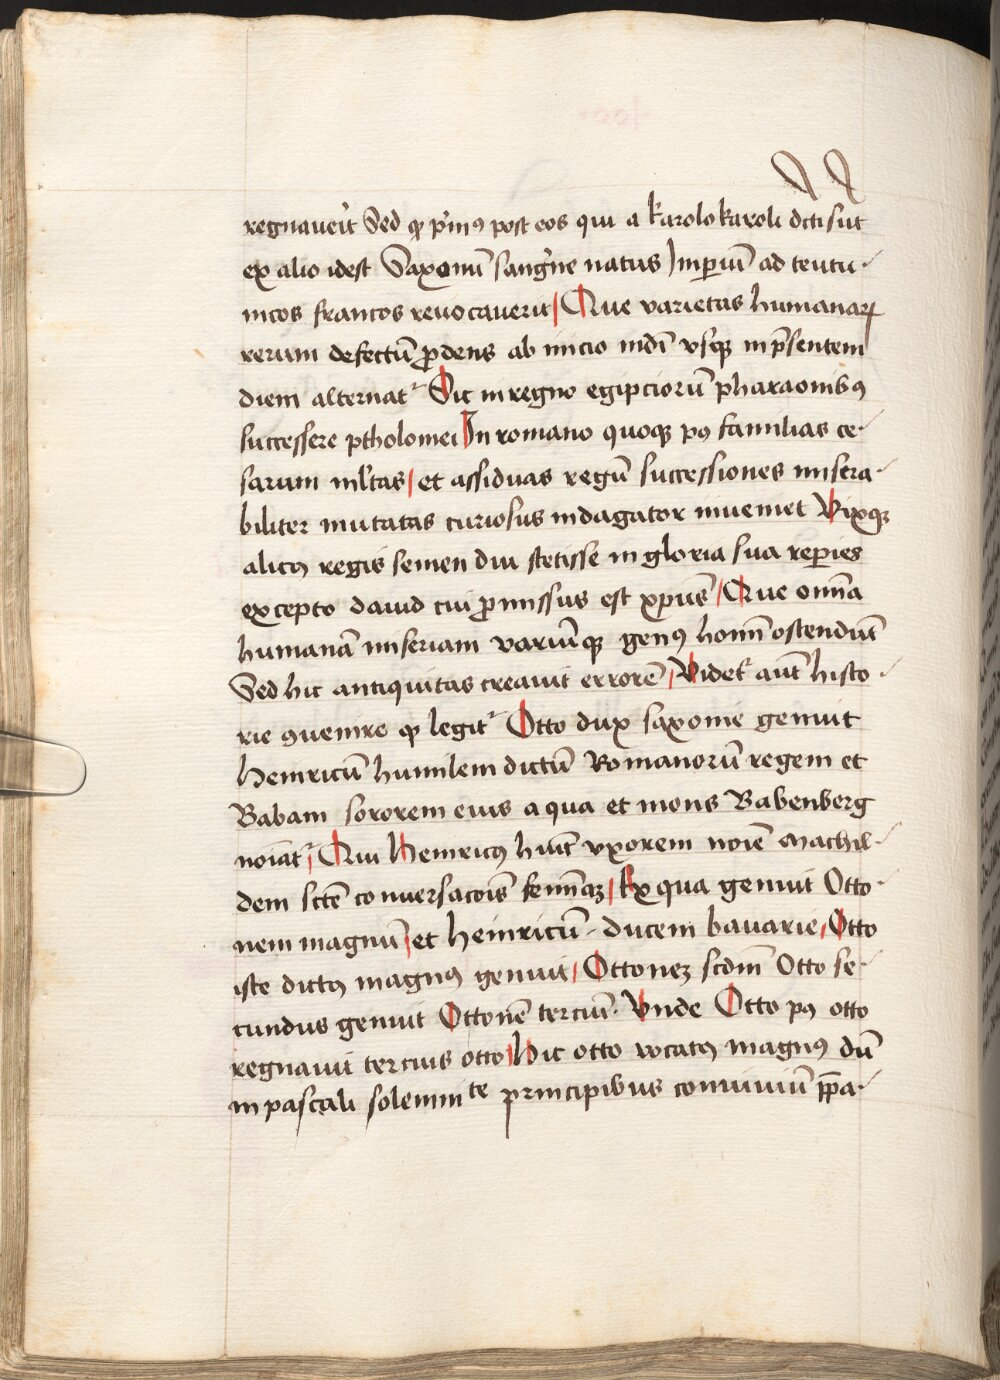 regnaue᷑it Sed ꝙ p᷑im⁹ post eos qui a karolo karoli dc̄ti sūt
ex alio idest Saxonū sang᷑ine natus Imperiū ad teutu-
nicos francos reuocauerit Que varietas humanaꝝ
rerum defectū ꝓdens ab inicio mūdi vsqꝫ in p̄sentem
diem alternat᷑ Sic in regno egipciorū pharaonib⁹
successere ptholomei In romano quoqꝫ p⁹ familias ce-
sarum ml̄tas et assiduas regū successiones misera-
biliter mutatas curiosus indagator inueniet Vixqꝫ
alicui⁹ regis semen diu stetisse in gloria sua reperies
excepto dauid cui ꝓmissus est xp̄us Que omīa
humanā miseriam variūqꝫ gen⁹ homī ostendūt
Sed hic antiquitas creauit errorē Videt᷑ aūt histo-
rie ꝯuenire ꝙ legit᷑ Otto dux saxonie genuit
Heinricū humilem dictū Romanorū regem et
Babam sororem eius a qua et mons Babenberg
noīat᷑ Qui Heinric⁹ hūit vxorem noīe Machil-
dem sctē conuersacoīs femīaꝫ Ex qua genuit Otto-
nem magnū et heinricū ducem bauarie Otto
iste dict⁹ magn⁹ genuit Ottonez scdm̄ Otto se-
cundus genuit Ottonē terciū Vnde Otto p⁹ otto
regnauit tercius otto Hic otto vocat⁹ magn⁹ dū
in pascali solemnite principibus conuiuiū p̄pa-